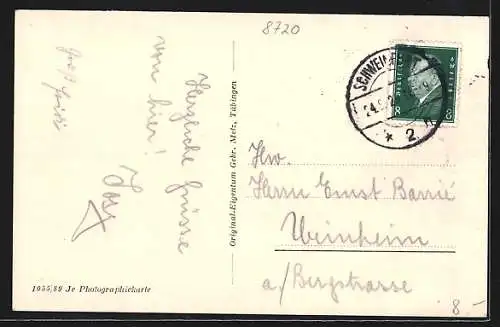 8720
Herzliche Grüsse
von hier!
Original-Eigentum Gebr. Metz, Tübingen
SCHWEIN
24.9.2
* 2
DEUTSCHES REICH
8 8
Hw.
Herrn Ernst Barrié
Weinheim
a./Bergstrasse
1055/89 Je Photographiekarte
8 -